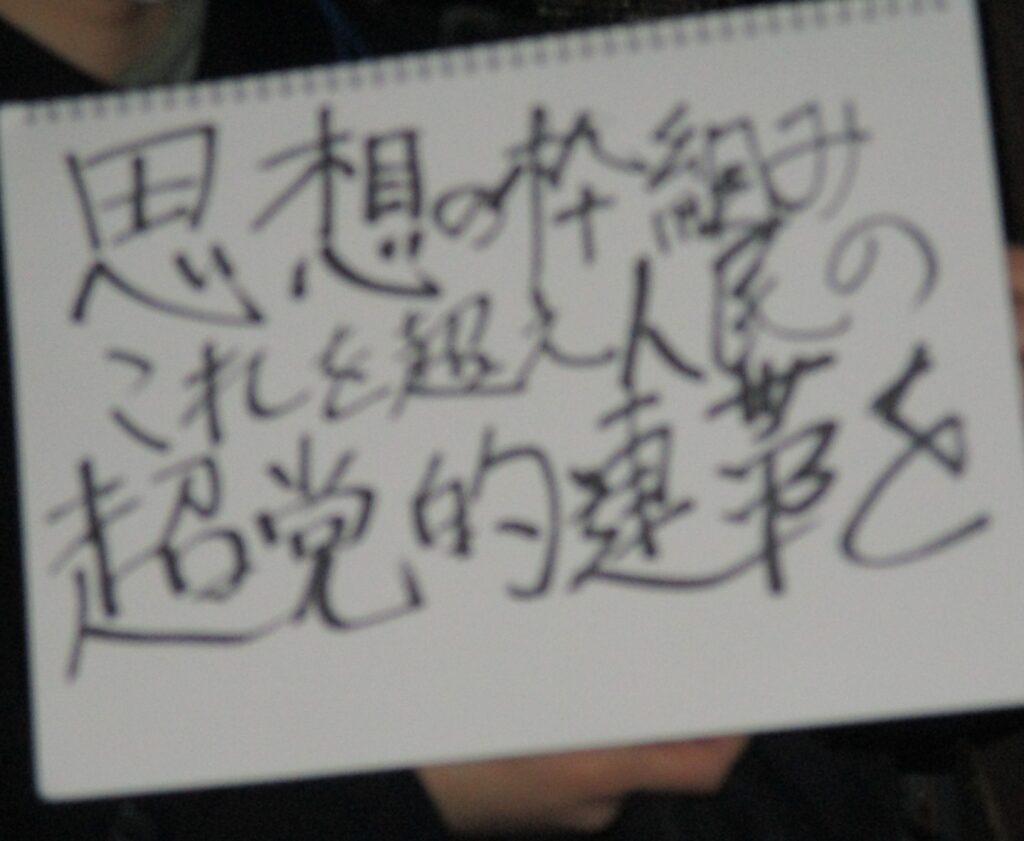 思想の枠組み
これを超え人民の
超党的連帯を